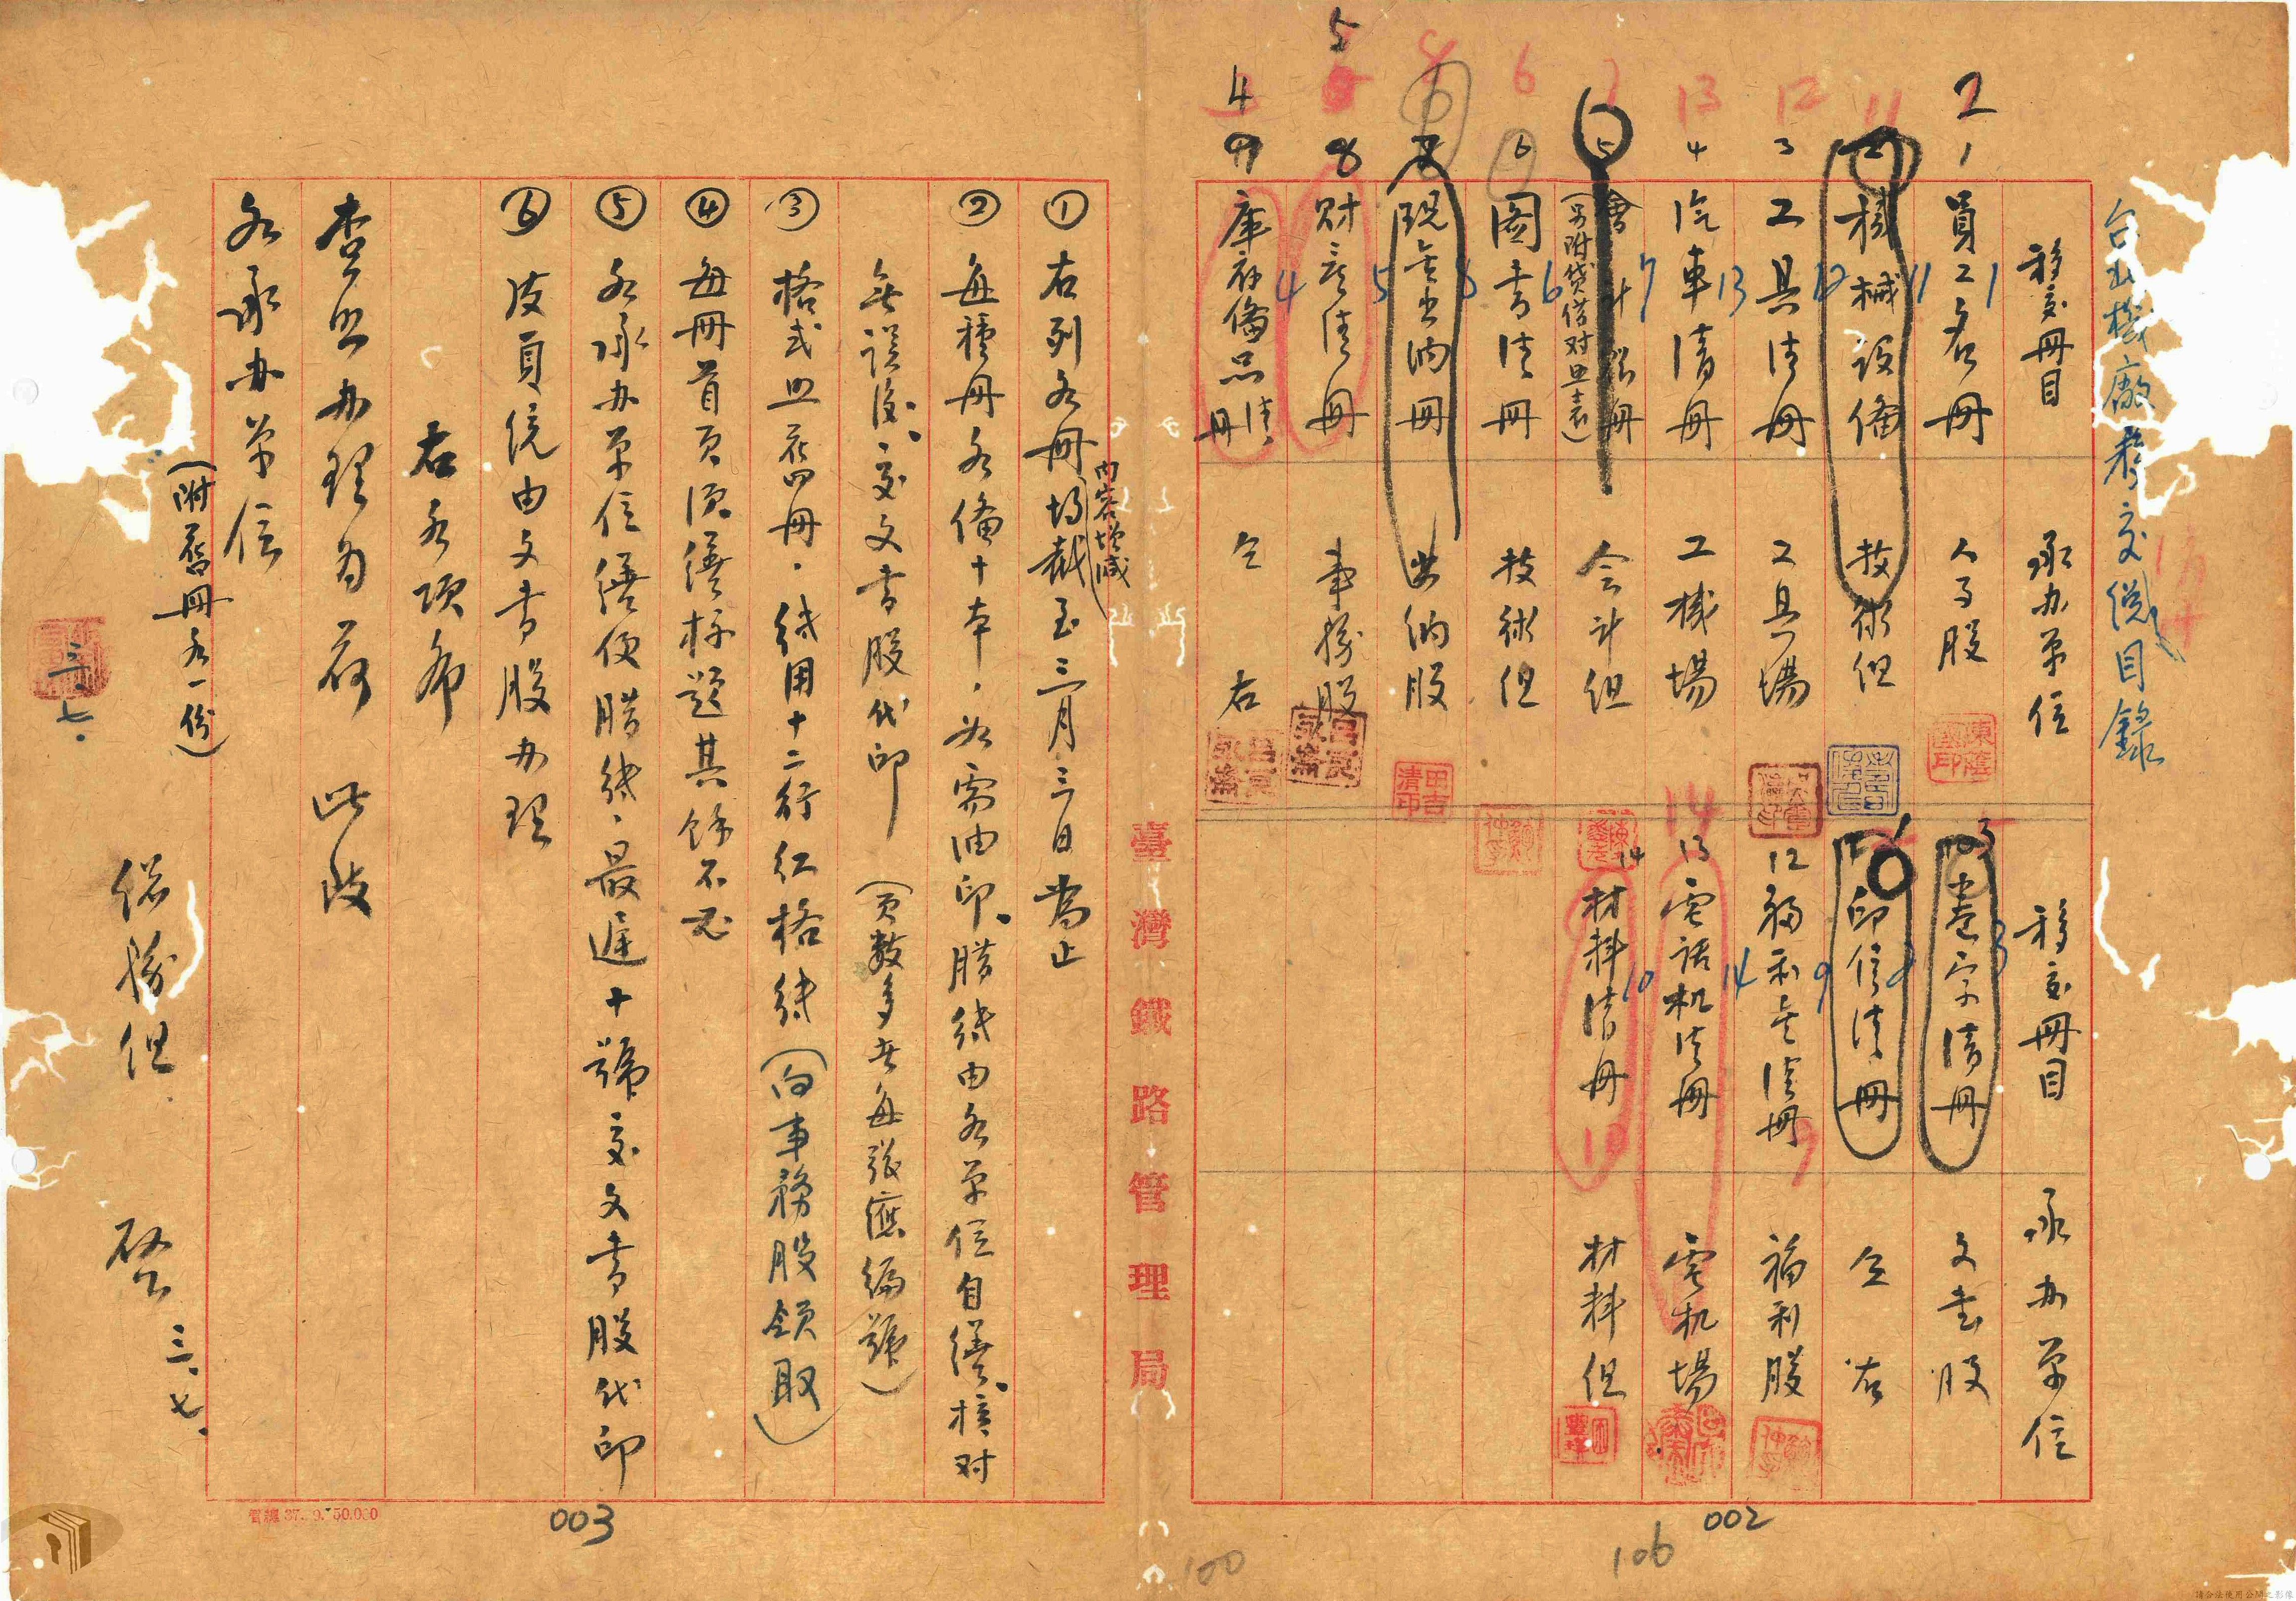 台北機廠移交總目錄
移交冊目 承办單位 移交冊目 承办單位
2 1 員工名冊 人事股 卷宗清冊 文書股
機械設備 技術組 印信清冊 仝右
12 3 工具清冊 工具場 12 福利社清冊 福利股
13 4 汽車清冊 工機場 13 電話机清冊 電机場
會計 冊 会計組 14 材料清冊 材料組
(另附貸借对照表)
6 6 圖書清冊 技術組
現金出納冊 出納股
5 8 財產清冊 事務股
4 9 庫存備品清冊 仝右
臺灣鐵路管理局
① 右列各冊均截至三月三日為止
內容增減
② 每種冊各備十本，如需油印、腊紙由各單位自繕、核对
無誤後、交文書股代印 (頁数多者每張應編號)
③ 格式照舊冊，紙用十二行紅格紙 (向事務股領取)
④ 每冊首頁須繕標題其餘不必
⑤ 各承办單位繕便腊紙，最遲十號交文書股代印
⑥ 皮頁統由文書股办理
右各項希
查照办理為荷 此致
各承办單位
(附舊冊各一份)
總務組 啓 三、七、
三、七、
管纏 37. 9. 50.000
003
002
106
100
請合法使用公開之影像